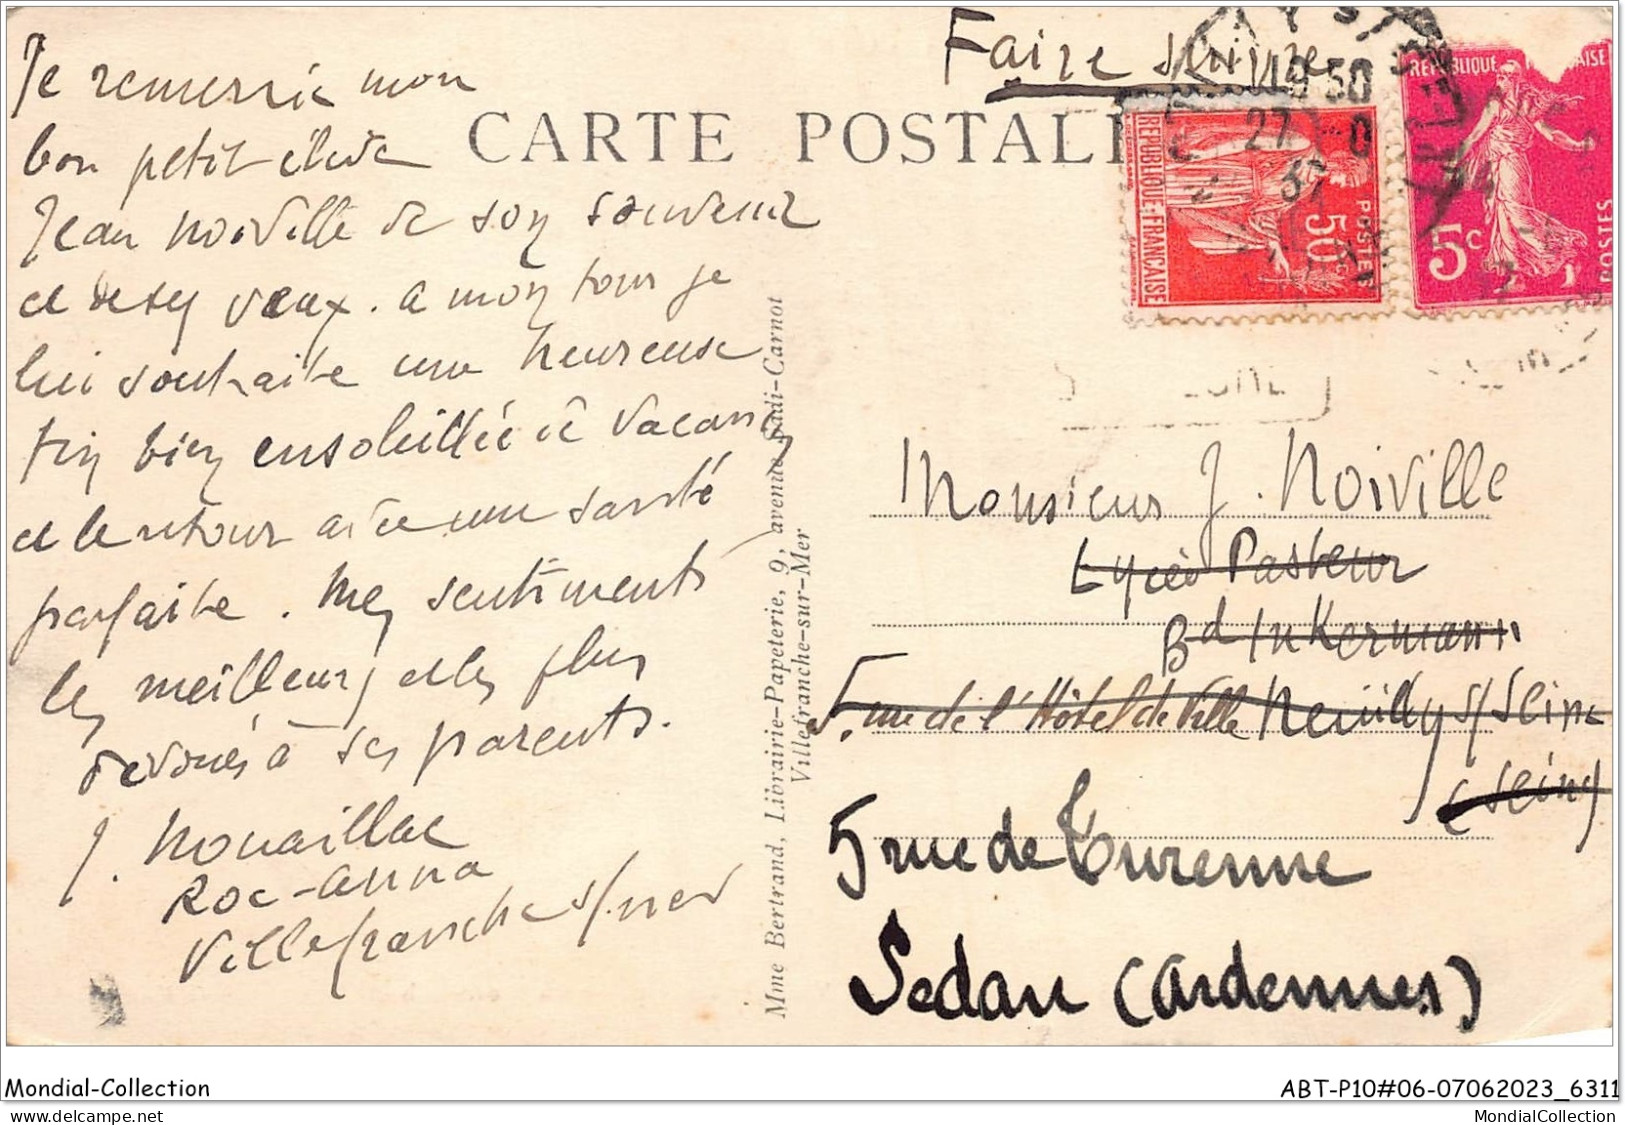 Je remercie mon
bon petit élève
Jean Noiville de son souvenir
et de ses vœux. A mon tour je
lui souhaite une heureuse
fin bien ensoleillée de vacances
et le retour avec une santé
parfaite. Mes sentiments
les meilleurs et les plus
dévoués à ses parents.
J. Nouaillac
Roc-Anna
Villefranche s/mer
CARTE POSTALE
Mme Bertrand, Librairie-Papeterie, 9, avenue Sadi-Carnot
Villefranche-sur-Mer
Faire suivre
REPUBLIQUE FRANÇAISE
POSTES
50c
REPUBLIQUE FRANÇAISE
5c
POSTES
27
Monsieur J. Noiville
Lycée Pasteur
Bd Inkermann
5, rue de l'Hôtel de Ville Neuilly s/Seine
(Seine)
5 rue de Turenne
Sedan (Ardennes)
Mondial-Collection
ABT-P10#06-07062023_6311
MondialCollection